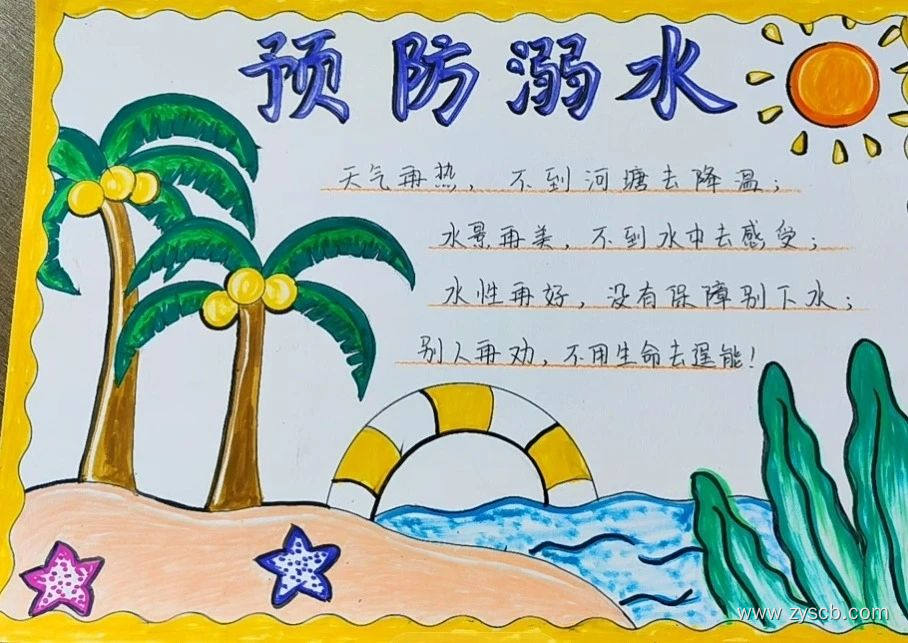 预防溺水
天气再热，不到河塘去降温；
水景再美，不到水中去感受；
水性再好，没有保障别下水；
别人再劝，不用生命去逞能！
www.zyscb.com